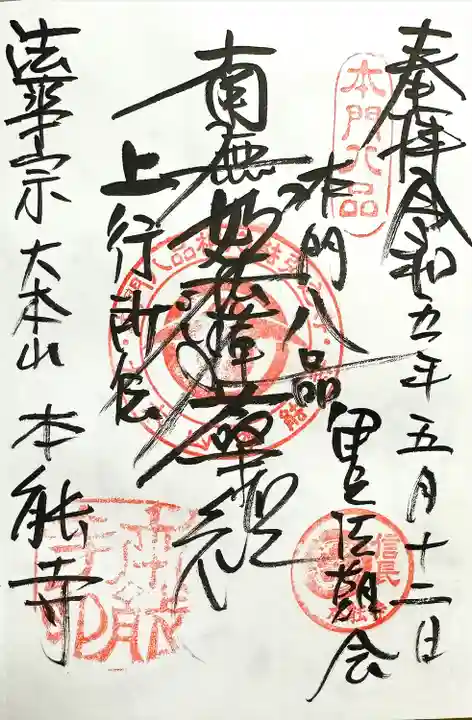 奉拝 令和五年五月十二日
本門八品
本門八品
南無妙法蓮華経
上行所伝
法華宗 大本山 本能寺
信長